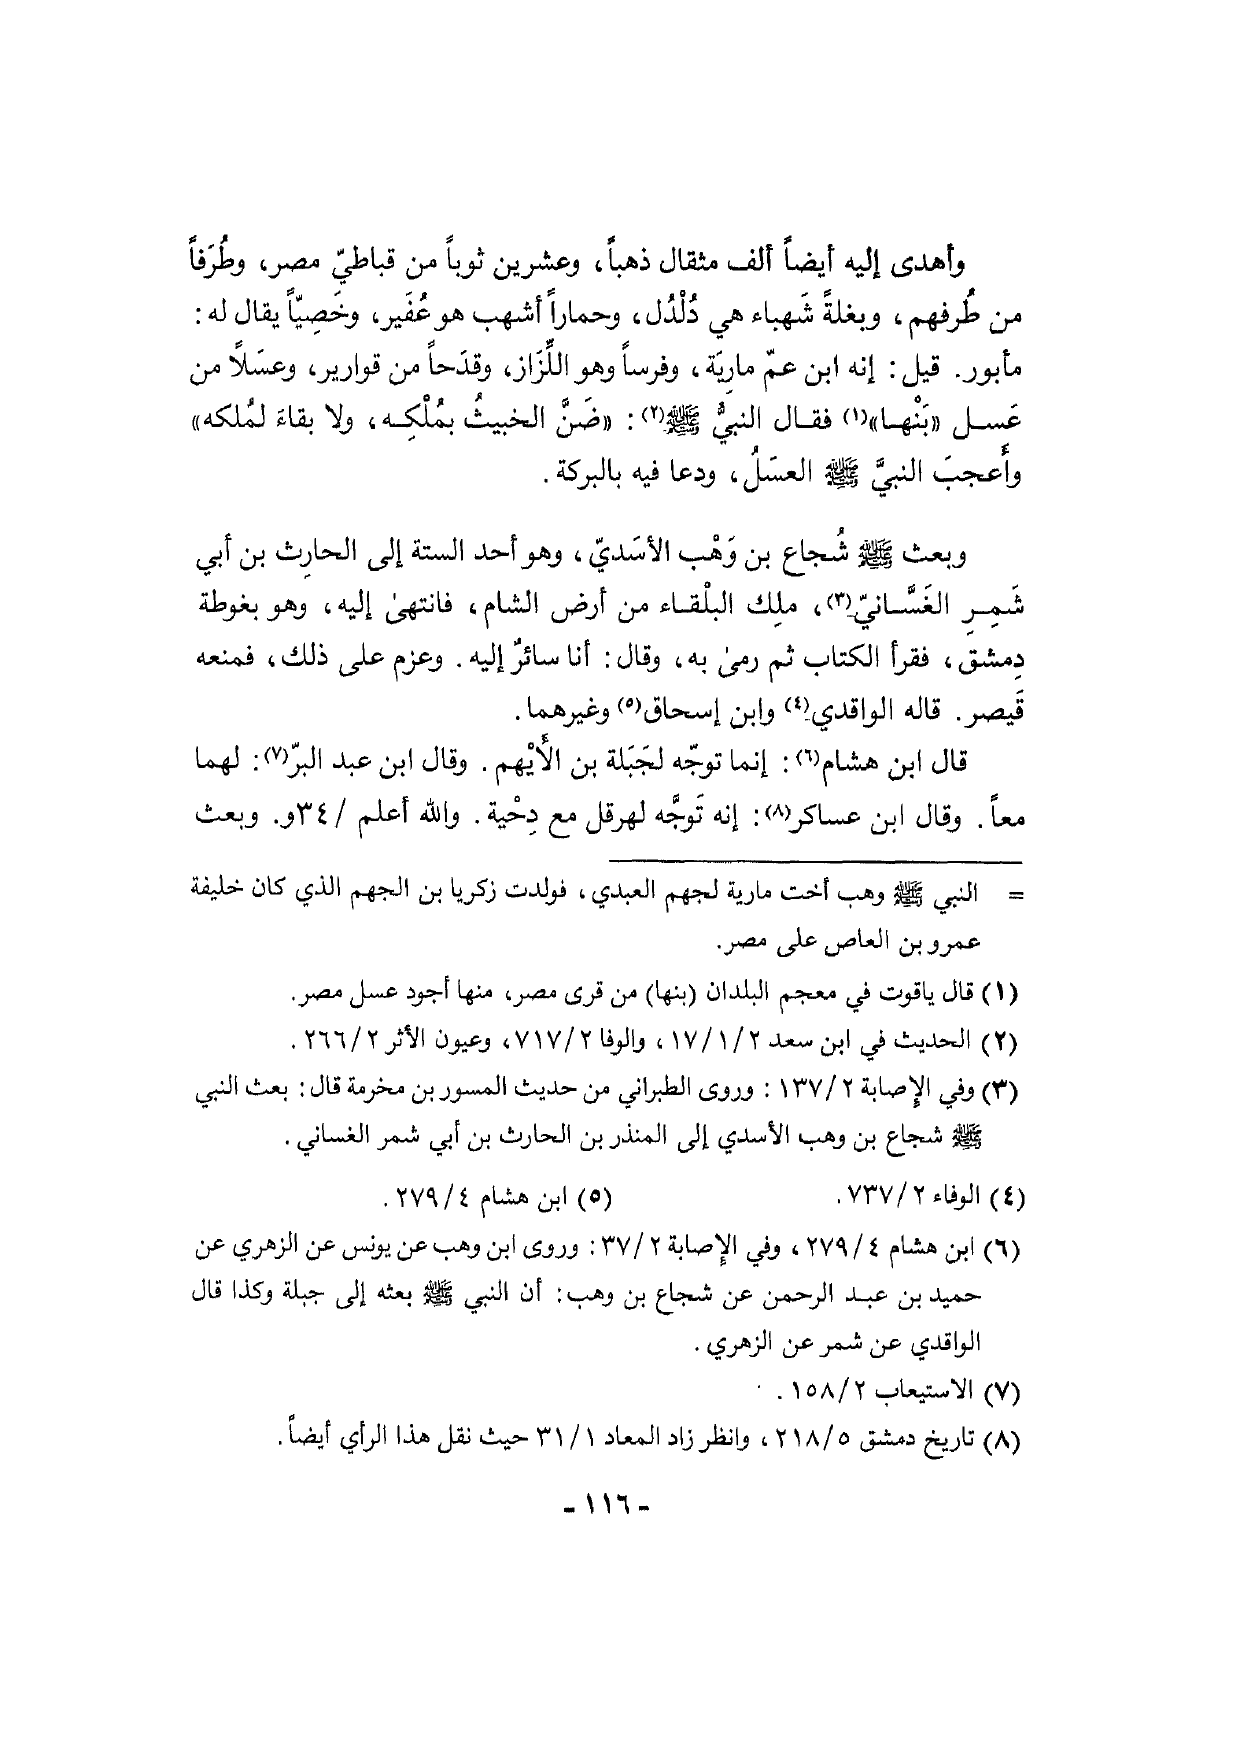 وأهدى إليه أيضاً ألف مثقال ذهباً، وعشرين ثوباً من قباطيّ مصر، وطُرَفاً
من طُرفهم، وبغلةً شَهباء هي دُلْدُل، وحماراً أشهب هو عُفَير، وخَصِيّاً يقال له:
مأبور. قيل: إنه ابن عمّ مارِيَة، وفرساً وهو اللِّزَاز، وقدَحاً من قوارير، وعسَلاً من
عَسـل «بَنْهـا»(١) فقـال النبيُّ ﷺ(٢): «ضَنَّ الخبيثُ بمُلْكِـه، ولا بقاءَ لمُلكه»
وأُعجبَ النبيَّ ﷺ العسَلُ، ودعا فيه بالبركة.
وبعث ﷺ شُجاع بن وَهْب الأسَديّ، وهو أحد الستة إلى الحارِث بن أبي
شَمِـرِ الغَسَّـانيّ(٣)، ملِك البلْقـاء من أرض الشام، فانتهىٰ إليه، وهو بغوطة
دِمشق، فقرأ الكتاب ثم رمىٰ به، وقال: أنا سائرٌ إليه. وعزم على ذلك، فمنعه
قَيصر. قاله الواقدي(٤) وابن إسحاق(٥) وغيرهما.
قال ابن هشام(٦): إنما توجّه لجَبَلة بن الأَيْهم. وقال ابن عبد البرّ(٧): لهما
معاً. وقال ابن عساكر(٨): إنه تَوجَّه لهرقل مع دِحْية. والله أعلم /٣٤و. وبعث
= النبي ﷺ وهب أخت مارية لجهم العبدي، فولدت زكريا بن الجهم الذي كان خليفة
عمرو بن العاص على مصر.
(١) قال ياقوت في معجم البلدان (بنها) من قرى مصر، منها أجود عسل مصر.
(٢) الحديث في ابن سعد ١٧/١/٢، والوفا ٧١٧/٢، وعيون الأثر ٢٦٦/٢.
(٣) وفي الإصابة ١٣٧/٢: وروى الطبراني من حديث المسور بن مخرمة قال: بعث النبي
ﷺ شجاع بن وهب الأسدي إلى المنذر بن الحارث بن أبي شمر الغساني.
(٤) الوفاء ٧٣٧/٢. (٥) ابن هشام ٢٧٩/٤.
(٦) ابن هشام ٢٧٩/٤، وفي الإصابة ٣٧/٢: وروى ابن وهب عن يونس عن الزهري عن
حميد بن عبـد الرحمن عن شجاع بن وهب: أن النبي ﷺ بعثه إلى جبلة وكذا قال
الواقدي عن شمر عن الزهري.
(٧) الاستيعاب ١٥٨/٢.
(٨) تاريخ دمشق ٢١٨/٥، وانظر زاد المعاد ٣١/١ حيث نقل هذا الرأي أيضاً.
- ١١٦ -